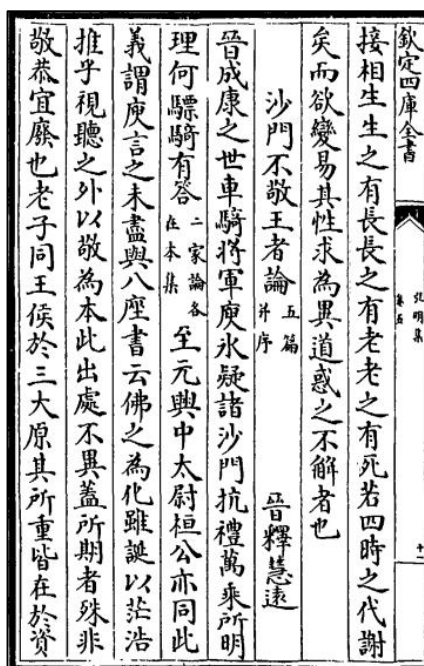 欽定四庫全書
弘明集
卷五
十一
接相生生之有長長之有老老之有死若四時之代謝
矣而欲變易其性求為異道惑之不解者也
沙門不敬王者論五篇并序 晉釋慧遠
晉成康之世車騎將軍庾氷疑諸沙門抗禮萬乘所明
理何驃騎有答二家論各在本集至元興中太尉桓公亦同此
義謂庾言之未盡與八座書云佛之為化雖誕以茫浩
推乎視聽之外以敬為本此出處不異蓋所期者殊非
敬恭宜廢也老子同王侯於三大原其所重皆在於資